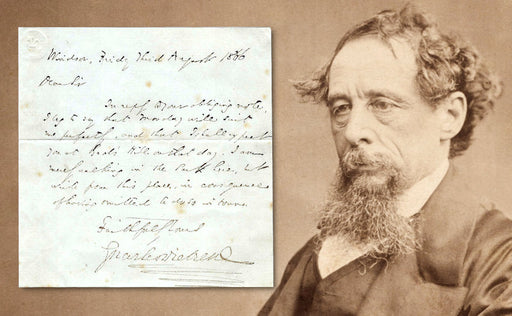 Friday Third August 1866
Dear Sir
In reply to your obliging note,
I beg to say that Monday will suit
me perfectly, and that I shall expect
you at Gad's Hill on that day. I am
in the Park here, but
write from this place, in consequence
of having omitted to do so in town.
Faithfully Yours
Charles Dickens